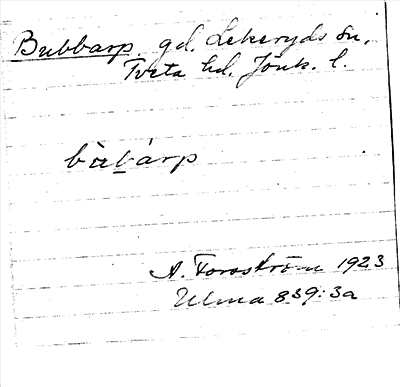 Bubbarp. gd, Lekeryds sn,
Tveta hd, Jönk. l.
bùbárp
A. Forsström 1923
Ulma 839:3a